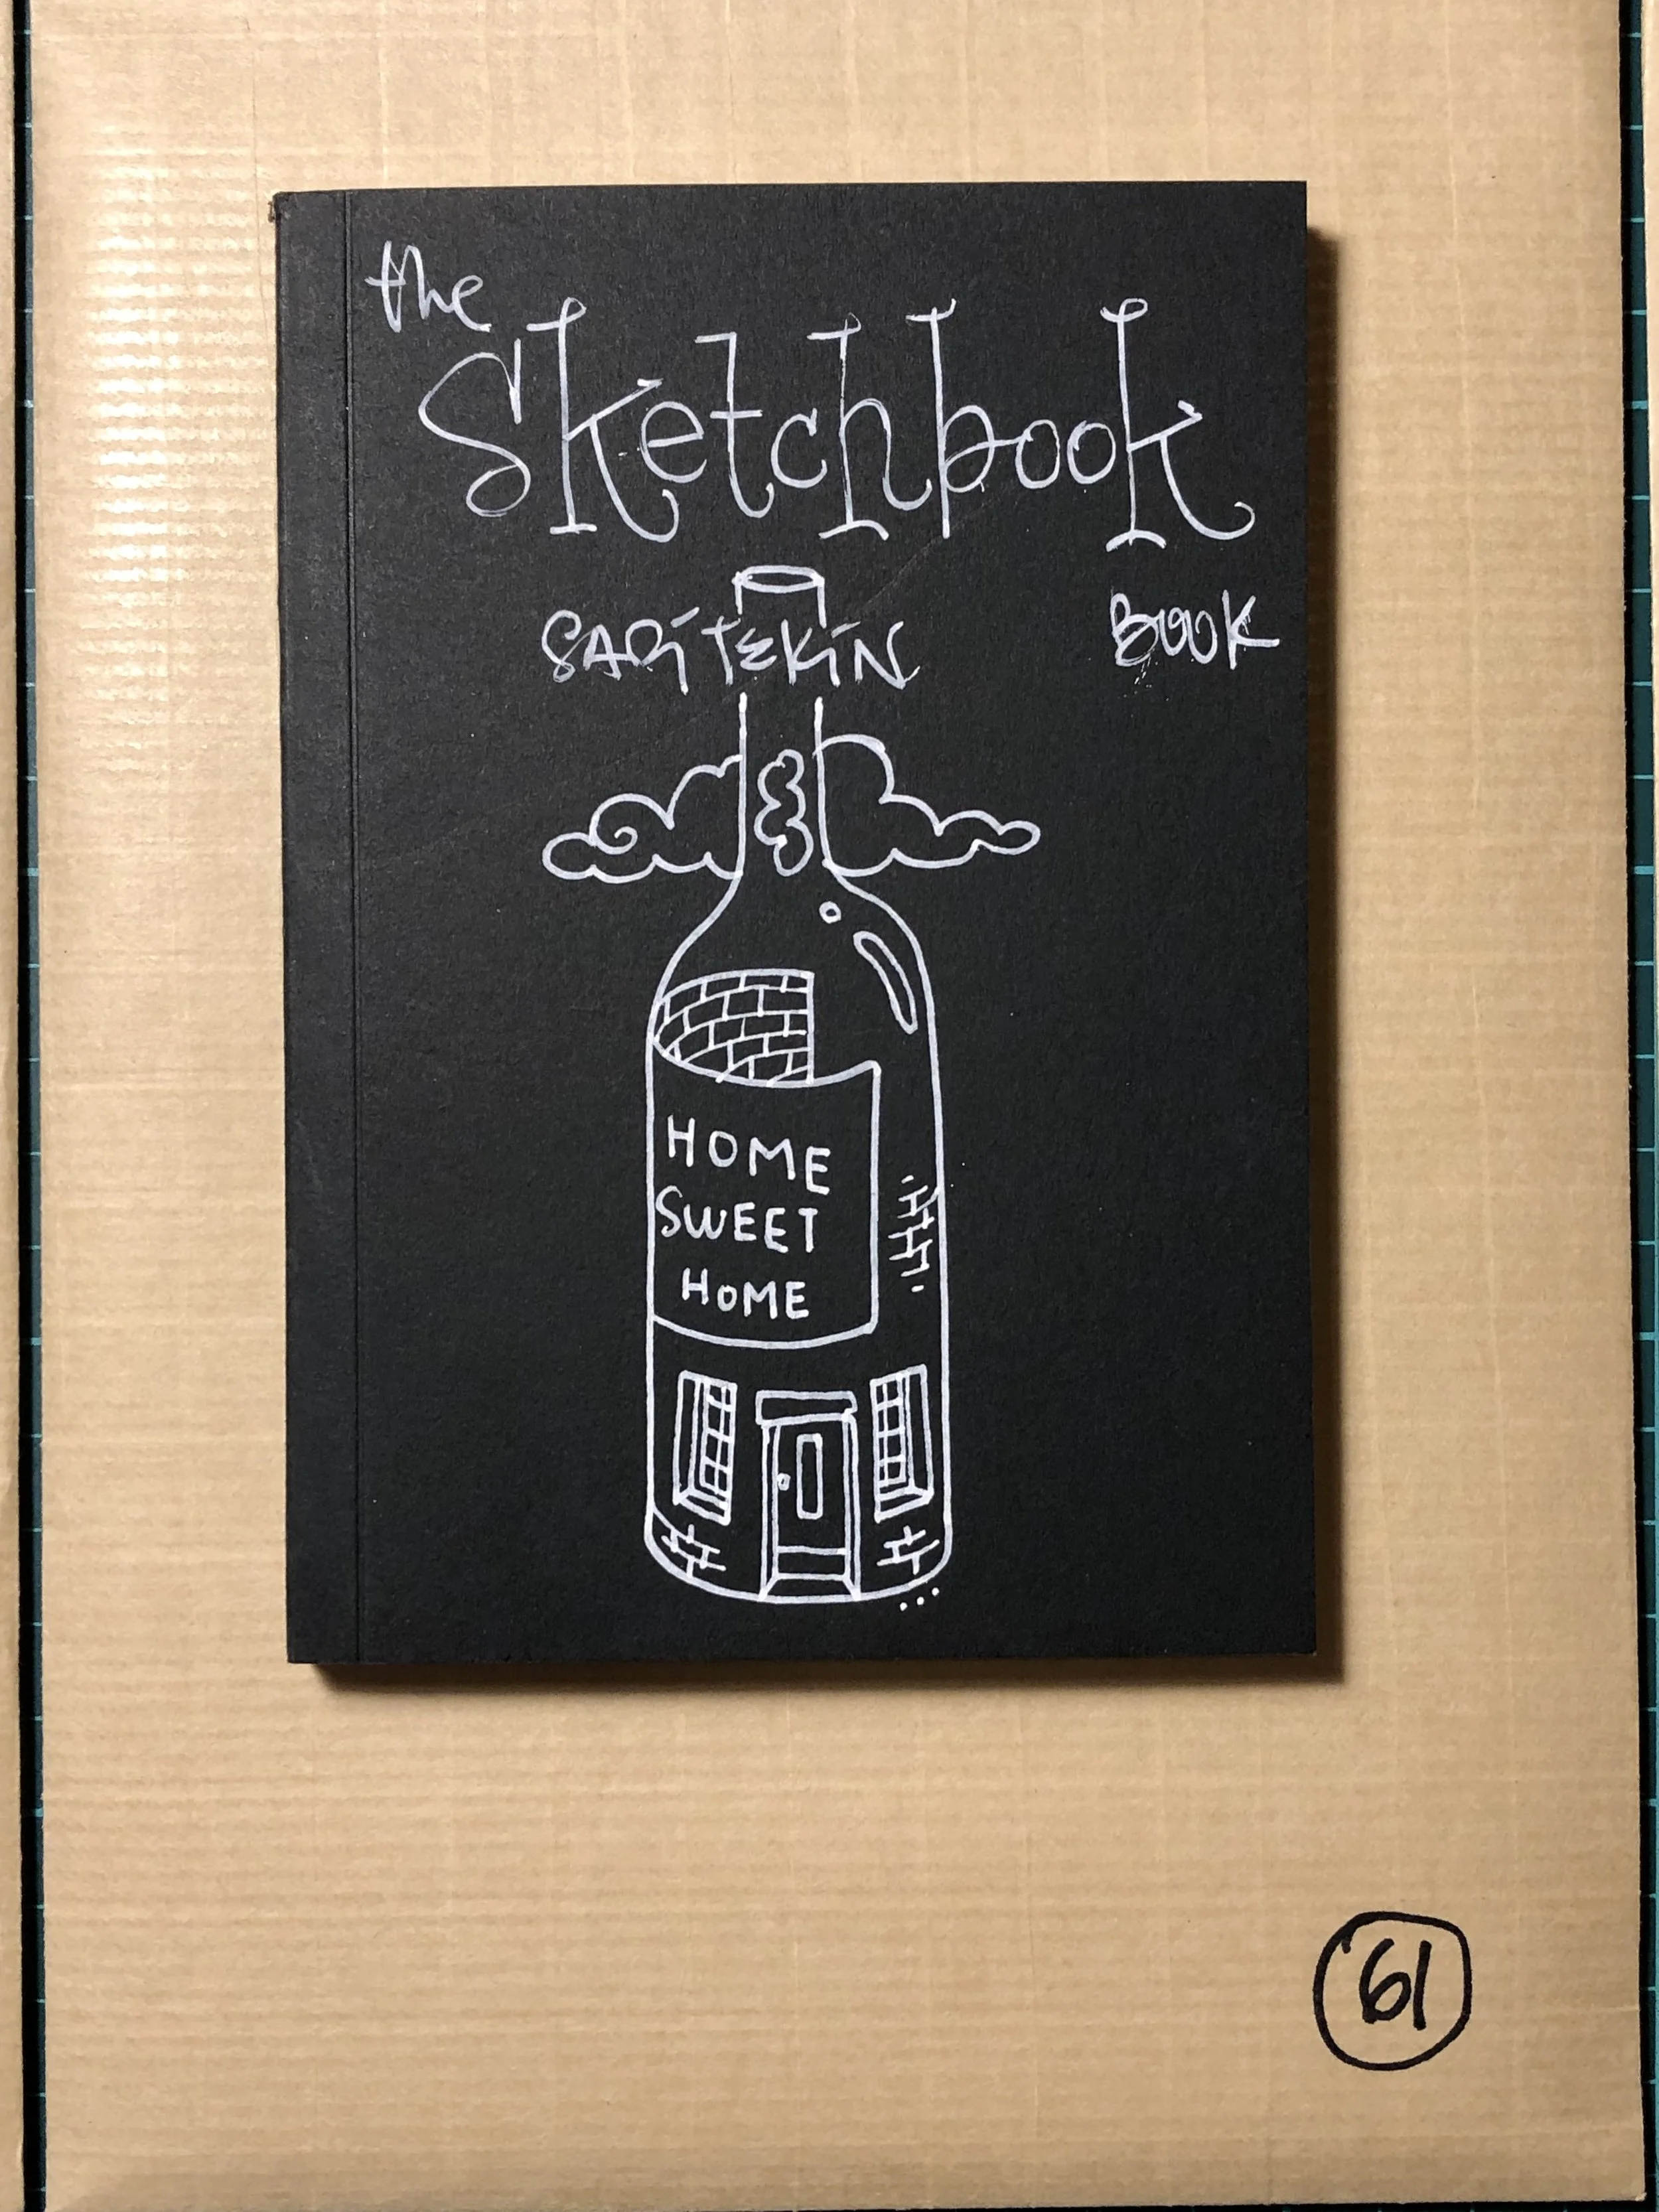 the
Sketchbook
SARİTEKİN
BOOK
HOME
SWEET
HOME
61